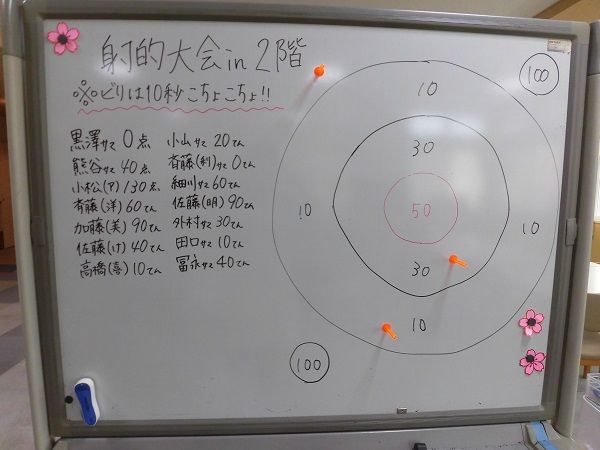 射的大会in2階
※ビリは10秒こちょこちょ!!
黒澤サマ 0点
熊谷サマ 40点
小松(マ) 130点
斉藤(洋) 60てん
加藤(美) 90てん
佐藤(け) 40てん
高橋(喜) 10てん
小山サマ 20てん
斉藤(利)サマ 0てん
細川サマ 60てん
佐藤(明) 90てん
外村サマ 30てん
田口サマ 10てん
冨永サマ 40てん
100
10
30
10
50
10
30
10
100